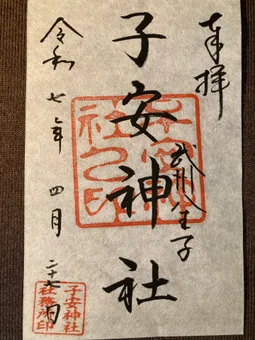 奉拝
武州八王子
子安神社
令和七年四月二十七日
子安神社之印
子安神社
社務所印